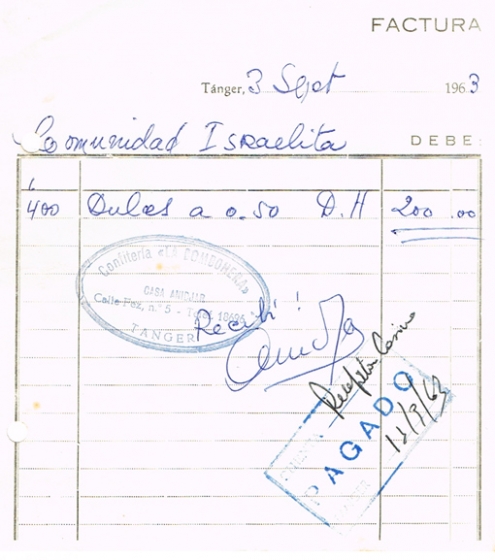 FACTURA
Tánger, 3 Sept 1963
Comunidad Israelita DEBE:
400 Dulces a 0.50 D.H 200.00
Confitería «LA
CASA
Calle Fez, n.° 5 -
TANGER
Recibí!
Recepción Casino
PAGADO
13/9/63